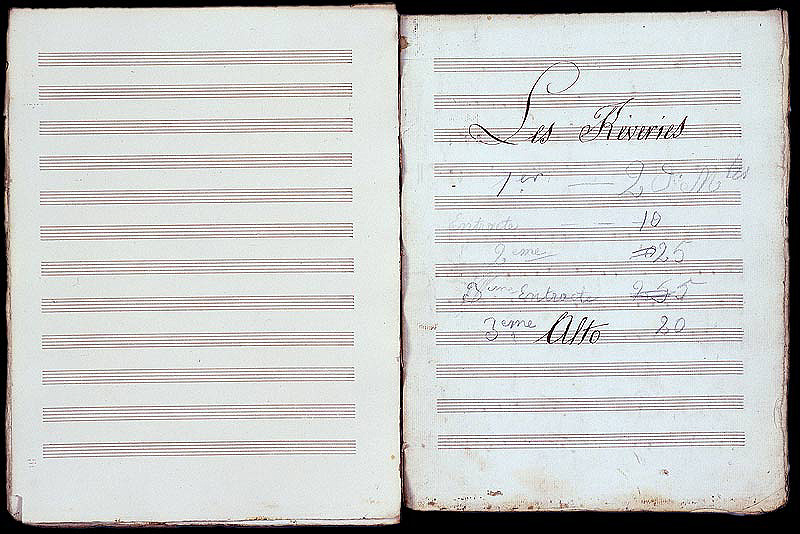 Les Rêveries
1er — 25 Mtes
Entracte — — 10
2eme 25
Entracte
3eme Alto 20